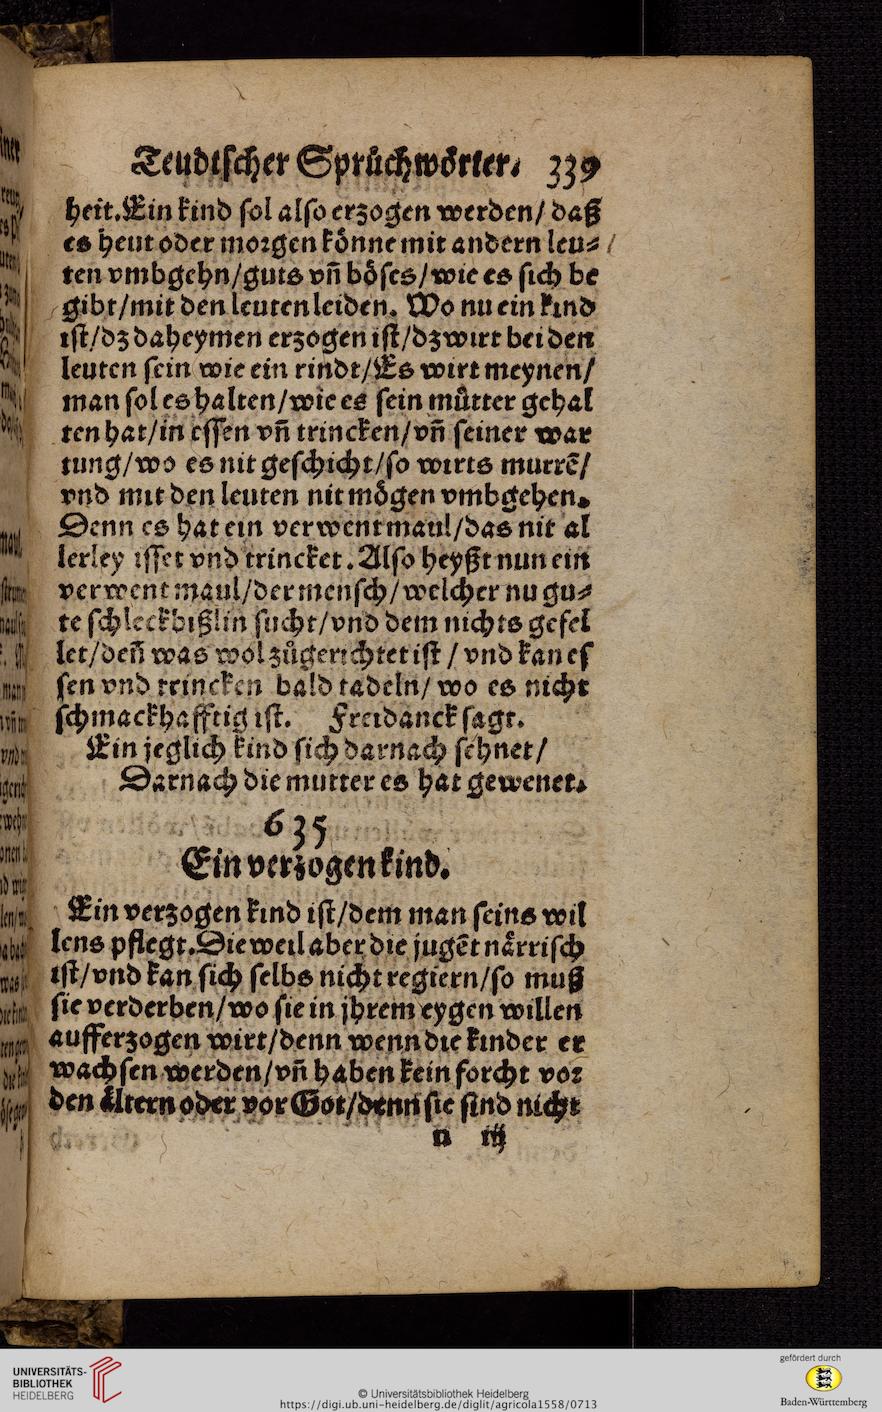 Teudtscher Sprůchwörter. 339
heit. Ein kind sol also erzogen werden/ daß
es heut oder morgen könne mit andern leu⸗
ten vmbgehn/guts vñ böses/wie es sich be
gibt/mit den leuten leiden. Wo nu ein kind
ist/dz daheymen erzogen ist/dz wirt bei den
leuten sein wie ein rindt/Es wirt meynen/
man sol es halten/wie es sein můtter gehal
ten hat/in essen vñ trincken/vñ seiner war
tung/wo es nit geschicht/so wirts murrẽ/
vnd mit den leuten nit mögen vmbgehen.
Denn es hat ein verwent maul/das nit al
lerley isset vnd trincket. Also heyßt nun ein
verwent maul/der mensch/welcher nu gu⸗
te schleckbißlin sucht/vnd dem nichts gefel
let/deñ was wol zůgerichtet ist / vnd kan es
sen vnd trincken bald tadeln/ wo es nicht
schmackhafftig ist. Freidanck sagt.
Ein jeglich kind sich darnach sehnet/
Darnach die mutter es hat gewenet.
635
Ein verzogen kind.
Ein verzogen kind ist/dem man seins wil
lens pflegt. Dieweil aber die jugẽt närrisch
ist/vnd kan sich selbs nicht regiern/so muß
sie verderben/wo sie in jhrem eygen willen
aufferzogen wirt/denn wenn die kinder er
wachsen werden/vñ haben kein forcht vor
den ältern oder vor Got/denn sie sind nicht
n iij
UNIVERSITÄTS-
BIBLIOTHEK
HEIDELBERG
© Universitätsbibliothek Heidelberg
https://digi.ub.uni-heidelberg.de/diglit/agricola1558/0713
gefördert durch
Baden-Württemberg